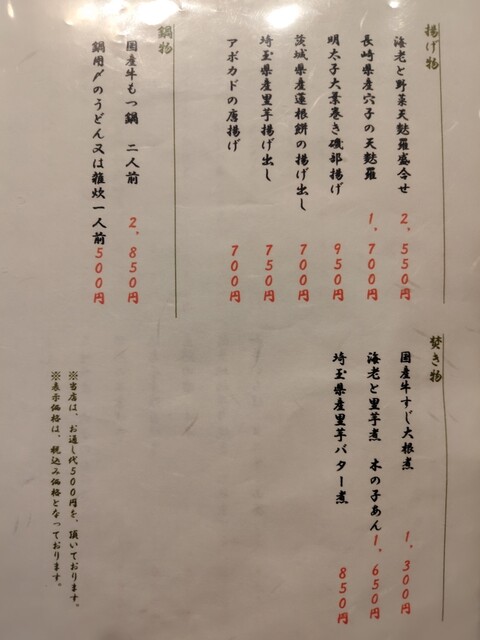 揚げ物
海老と野菜天麩羅盛合せ 2,550円
長崎県産穴子の天麩羅 1,700円
明太子大葉巻き磯部揚げ 950円
茨城県産蓮根餅の揚げ出し 700円
埼玉県産里芋揚げ出し 750円
アボカドの唐揚げ 700円
鍋物
国産牛もつ鍋 二人前 2,850円
鍋用〆のうどん又は雑炊一人前 500円
焚き物
国産牛すじ大根煮 1,300円
海老と里芋煮 木の子あん 1,650円
埼玉県産里芋バター煮 850円
※当店は、お通し代500円を、頂いております。
※表示価格は、税込み価格となっております。